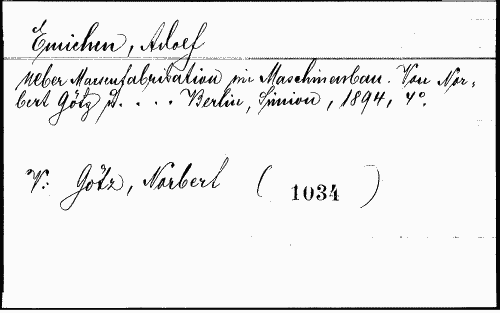 Emichen, Adolf
Ueber Massenfabrikation im Maschinenbau. Von Nor-
bert Götz d. . . . Berlin, Simion, 1894, 4°.
V: Götz, Norbert ( 1034 )